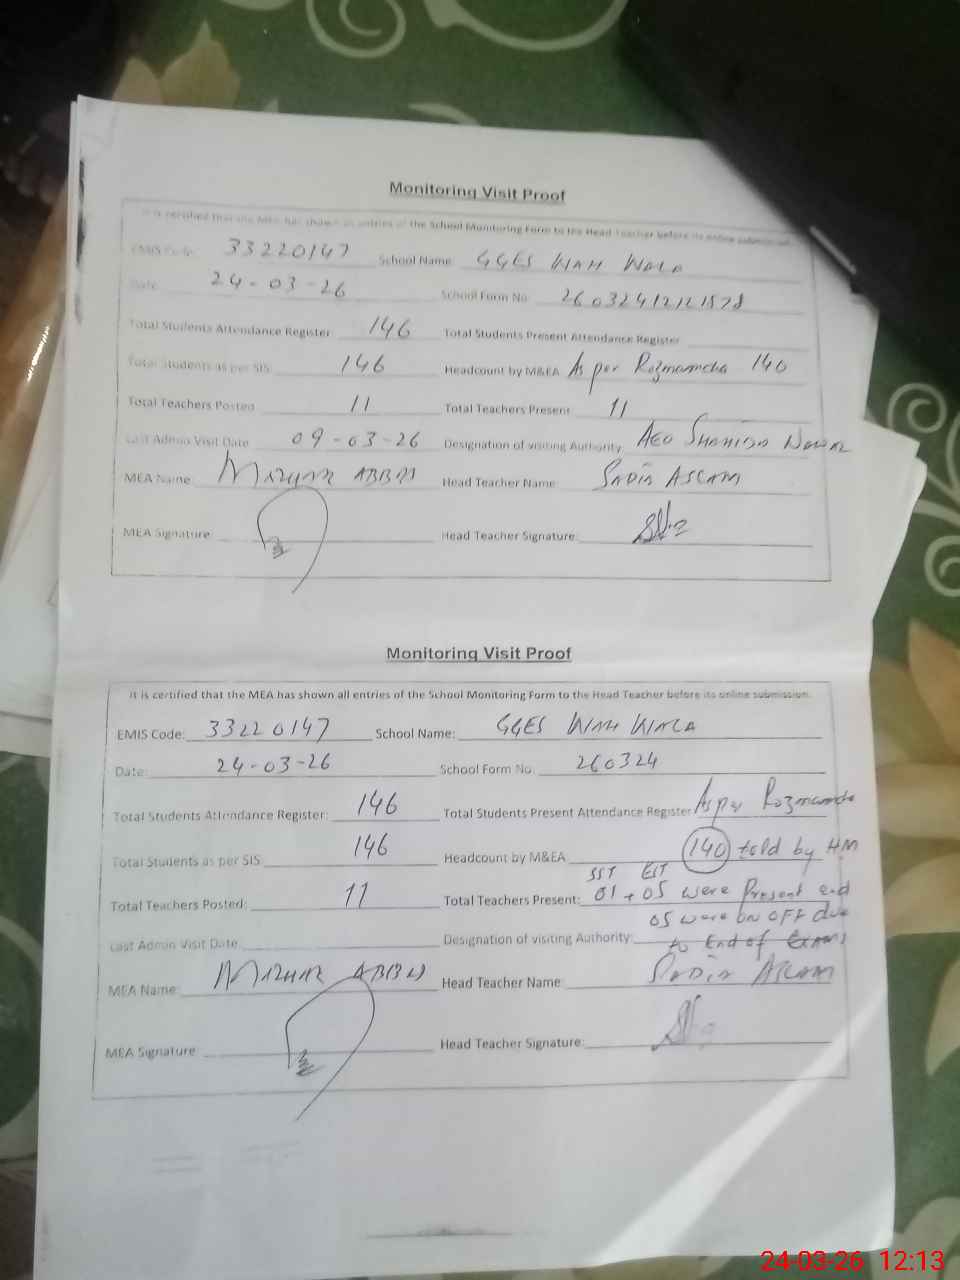 Monitoring Visit Proof
It is certified that the MEA has shown all entries of the School Monitoring Form to the Head Teacher before its online submission.
EMIS Code: 33220147 School Name: GGES WAH WALA
Date: 24-03-26 School Form No: 26032412121578
Total Students Attendance Register: 146 Total Students Present Attendance Register
Total Students as per SIS: 146 Headcount by M&EA As per Rozmamcha 140
Total Teachers Posted 11 Total Teachers Present 11
Last Admin Visit Date 09-03-26 Designation of visiting Authority AEO
MEA Name: Mazhar ABBAS Head Teacher Name: SADIA ASLAM
MEA Signature: Head Teacher Signature:
Monitoring Visit Proof
It is certified that the MEA has shown all entries of the School Monitoring Form to the Head Teacher before its online submission.
EMIS Code: 33220147 School Name: GGES WAH WALA
Date: 24-03-26 School Form No: 260324
Total Students Attendance Register: 146 Total Students Present Attendance Register As per Rozmamcha
Total Students as per SIS: 146 Headcount by M&EA 140 told by HM
SST EST
Total Teachers Posted: 11 Total Teachers Present: 01 + 05 were Present and
05 were on OFF due
Last Admin Visit Date Designation of visiting Authority: to End of Exams
MEA Name: Mazhar ABBAS Head Teacher Name: SADIA ASLAM
MEA Signature: Head Teacher Signature:
24-03-26 12:13